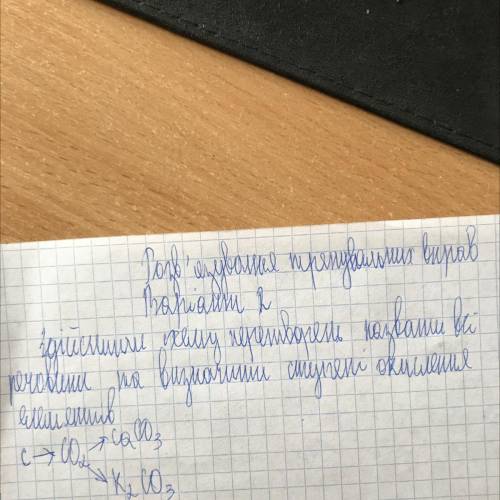 Розв'язування тренувальних вправ
Варіант 2
Здійснити схему перетворень назвати всі
речовини та визначити ступені окислення
елементів
CaCO₃
C → CO₂
K₂CO₃